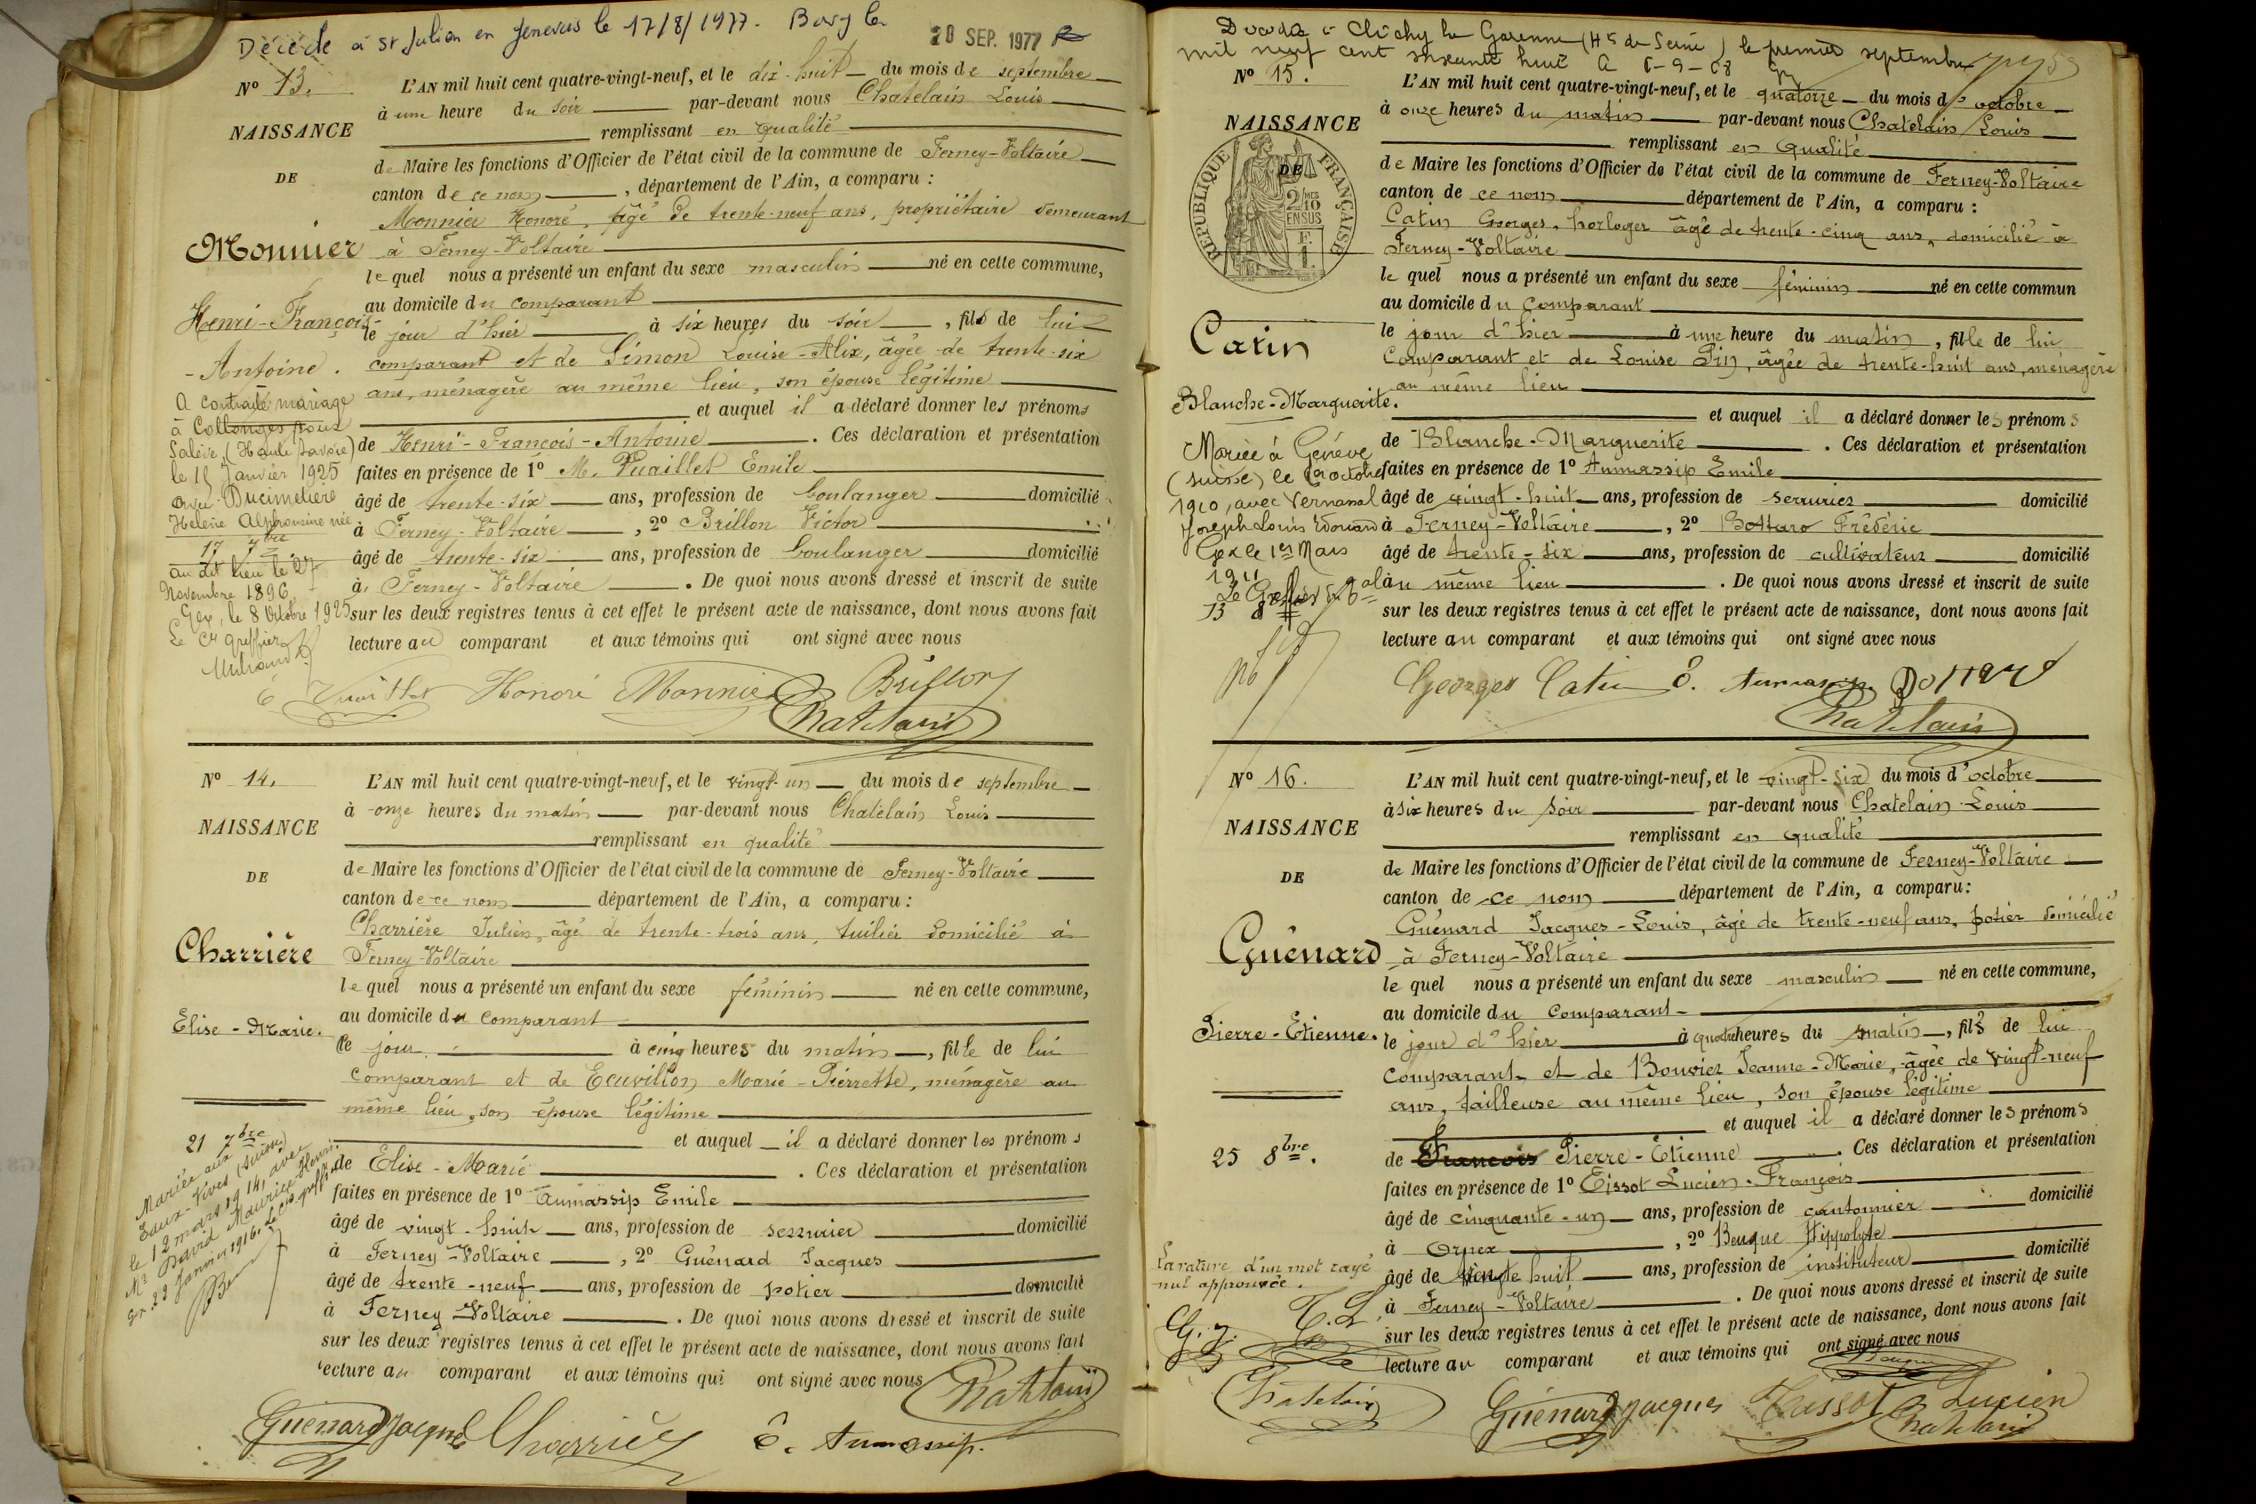 Décédé à St Julien en Genevois le 17/8/1977.
20 SEP. 1977
N° 13.
L'AN mil huit cent quatre-vingt-neuf, et le dix-huit du mois de septembre
à une heure du soir par-devant nous Chatelain Louis
NAISSANCE
remplissant en qualité
de Maire les fonctions d'Officier de l'état civil de la commune de Ferney-Voltaire
DE
canton de ce nom, département de l'Ain, a comparu :
Monnier Honoré, âgé de trente-neuf ans, propriétaire demeurant
Monnier
à Ferney-Voltaire
lequel nous a présenté un enfant du sexe masculin né en cette commune,
au domicile du comparant
Henri-François
le jour d'hier à six heures du soir, fils de lui
-Antoine.
comparant et de Simon Louise-Alix, âgée de trente-six
ans, ménagère au même lieu, son épouse légitime
et auquel il a déclaré donner les prénoms
de Henri-François-Antoine. Ces déclaration et présentation
faites en présence de 1° M. Vuaillet Emile
âgé de trente-six ans, profession de boulanger domicilié
à Ferney-Voltaire, 2° Brillon Victor
âgé de trente-six ans, profession de boulanger domicilié
à Ferney-Voltaire. De quoi nous avons dressé et inscrit de suite
sur les deux registres tenus à cet effet le présent acte de naissance, dont nous avons fait
lecture au comparant et aux témoins qui ont signé avec nous
A contracté mariage
à Collonges sous
Salève, (Haute Savoie)
le 15 Janvier 1925
avec Ducimetière
Hélène Alphonsine née
17 7bre
au dit lieu le 27
Novembre 1896.
Gex, le 8 Octobre 1925
Le Cis greffier
Honoré Monnier Brillon
Chatelain
N° 14.
L'AN mil huit cent quatre-vingt-neuf, et le vingt-un du mois de septembre
à onze heures du matin par-devant nous Chatelain Louis
NAISSANCE
remplissant en qualité
de Maire les fonctions d'Officier de l'état civil de la commune de Ferney-Voltaire
DE
canton de ce nom département de l'Ain, a comparu :
Charrière Julien, âgé de trente-trois ans, tuilier domicilié à
Charrière
Ferney-Voltaire
lequel nous a présenté un enfant du sexe féminin né en cette commune,
au domicile du comparant
Elise-Marie.
le jour à cinq heures du matin, fille de lui
comparant et de Ecuvillon Marie-Pierrette, ménagère au
même lieu, son épouse légitime
et auquel il a déclaré donner les prénoms
de Elise-Marie. Ces déclaration et présentation
faites en présence de 1° Aumassip Emile
âgé de vingt-huit ans, profession de serrurier domicilié
à Ferney-Voltaire, 2° Guénard Jacques
âgé de trente-neuf ans, profession de potier domicilié
à Ferney-Voltaire. De quoi nous avons dressé et inscrit de suite
sur les deux registres tenus à cet effet le présent acte de naissance, dont nous avons fait
lecture au comparant et aux témoins qui ont signé avec nous
21 7bre
Mariée aux
Eaux-Vives (Suisse)
le 12 mars 1914, avec
Mr David Maurice Henri
Gex 29 Janvier 1916. Le Cis greffier
Chatelain
Guénard Jacques Charrière E. Aumassip.
Décédée à Clichy la Garenne (Hts de Seine) le premier septembre
mil neuf cent soixante huit
N° 15.
L'AN mil huit cent quatre-vingt-neuf, et le quatorze du mois d'octobre
à onze heures du matin par-devant nous Chatelain Louis
NAISSANCE
remplissant en qualité
RÉPUBLIQUE FRANÇAISE
2/10 EN SUS
DE
de Maire les fonctions d'Officier de l'état civil de la commune de Ferney-Voltaire
canton de ce nom département de l'Ain, a comparu :
Catin Georges, horloger âgé de trente-cinq ans, domicilié à
Ferney-Voltaire
lequel nous a présenté un enfant du sexe féminin né en cette commun
au domicile du comparant
Catin
le jour d'hier à une heure du matin, fille de lui
comparant et de Louise Pin, âgée de trente-huit ans, ménagère
au même lieu
Blanche-Marguerite.
et auquel il a déclaré donner les prénoms
de Blanche-Marguerite. Ces déclaration et présentation
faites en présence de 1° Aumassip Emile
âgé de vingt-huit ans, profession de serrurier domicilié
à Ferney-Voltaire, 2° Bottaro Frédéric
âgé de trente-six ans, profession de cultivateur domicilié
au même lieu. De quoi nous avons dressé et inscrit de suite
sur les deux registres tenus à cet effet le présent acte de naissance, dont nous avons fait
lecture au comparant et aux témoins qui ont signé avec nous
Mariée à Genève
(Suisse) le octobre
1910, avec Vernassal
Joseph Louis Edouard
Gex le 1er Mars
1911
Le Greffier
13 8
Georges Catin E. Aumassip Bottaro
Chatelain
N° 16.
L'AN mil huit cent quatre-vingt-neuf, et le vingt-six du mois d'octobre
à six heures du soir par-devant nous Chatelain Louis
NAISSANCE
remplissant en qualité
de Maire les fonctions d'Officier de l'état civil de la commune de Ferney-Voltaire
DE
canton de ce nom département de l'Ain, a comparu :
Guénard Jacques-Louis, âgé de trente-neuf ans, potier domicilié
Guénard
à Ferney-Voltaire
lequel nous a présenté un enfant du sexe masculin né en cette commune,
au domicile du comparant
Pierre-Etienne.
le jour d'hier à quatre heures du matin, fils de lui
comparant et de Bouvier Jeanne-Marie, âgée de vingt-neuf
ans, tailleuse au même lieu, son épouse légitime
et auquel il a déclaré donner les prénoms
25 8bre.
de François Pierre-Etienne. Ces déclaration et présentation
faites en présence de 1° Tissot Lucien-François
âgé de cinquante-un ans, profession de cantonnier domicilié
à Ornex, 2° Hippolyte
âgé de huit ans, profession de instituteur domicilié
à Ferney-Voltaire. De quoi nous avons dressé et inscrit de suite
sur les deux registres tenus à cet effet le présent acte de naissance, dont nous avons fait
lecture au comparant et aux témoins qui ont signé avec nous
La rature d'un mot rayé
nul approuvée.
G. J. T. L.
Chatelain
Guénard Jacques Tissot Lucien
Chatelain